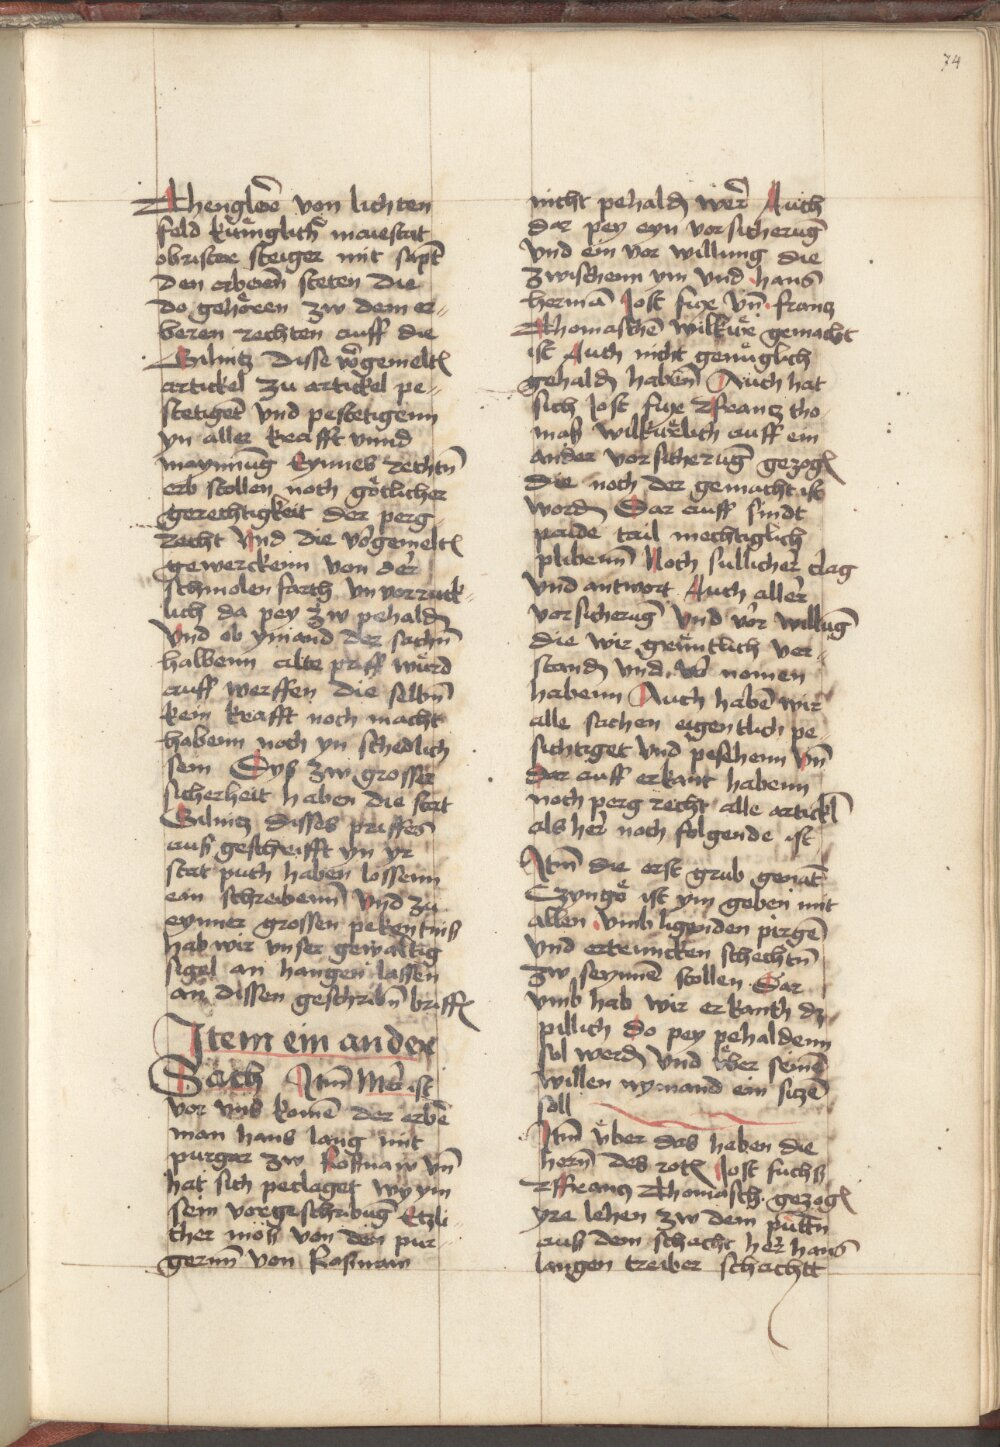 74
Thenglere von lichten
feld kuniglicher maiestat
obrister steiger mit sapt
den erberen steten die
do gehören zw dem er-
beren rechten auff die
Gilnitz disse vorgemelte
artickel zu artickel pe-
stetiget vnd pestetigenn
yn aller krafft vnnd
maynnūg Eynnes rechtn̄
erb stollen noch götlicher
gerechtigkeit der perg
recht Vnd die vorgemelte
gewerckenn von der
schmolen farth vnvorruck-
lich da pey zw pehalden
Vnd ob ymand der sachn̄
halbenn alte priff würd
auff werffen die selbn̄
kein krafft noch macht
habenn noch yn schedlich
sein Dys zw grosser
sicherheit haben die stat
Gilnitz disses priffes
aus geschrifft yn yr
stat puch haben lossenn
ein schreibenn Vnd zu
eynner grossen pekentnis
hab wir vnser gewaltig
sigel an hangen lassen
an dissen geschribn̄ briffe
Item ein ander
Sach Itm̄ Mer ist
vor vns komē der erbe
man hans lang mit
purger zw Rosnaw vn̄
hat sich peclaget wy ym
sein vorgeschribūg Etzli-
cher mos von den pur-
gernn̄ von Rosnaw
nicht pehalden wer Auch
dar pey eyn vorsicherūg
vnd ein vor willung die
zwischenn ym vnd hans
hermā Jost fuxe vn̄ frantz
Thomaschē wilküre gemacht
ist Auch nicht genüglich
gehalden habenn Auch hat
sich Jost fuxe Vfrantz tho-
mas wilkürlich auff ein
ander vorsicherūg gezogen
die noch der gemacht ist
worden Dar auff sindt
paide tail mechtiglich
plibenn Noch sullicher clag
vnd antwort Auch aller
vorsicherūg Vnd vor willūg
die wir gentlich ver-
standen vnd ver nomen
habenn Auch habē wir
alle sachen eigentlich pe-
sichtiget Vnd pesehenn Vn̄
dar auff erkant habenn
noch perg recht alle artickel
als her noch folgende ist
Itm̄ die erst grub genāt
Czynge ist ym geben mit
allen vmb ligenden pirgē
vnd ertruncken schechtn̄
zw seynnē stollen Dar
vmb hab wir erkanth dz
pillich Do pey pehaldenn
sol werden Vnd über seinē
willen nymand ein sitzē
soll
Itm̄ über das haben die
hern̄ des rotes Jost fuchs
Vffrancz Thomasch gezogen
yre lehen zw dem puttn̄
aus dem schacht her hans
langen treiber schachtt